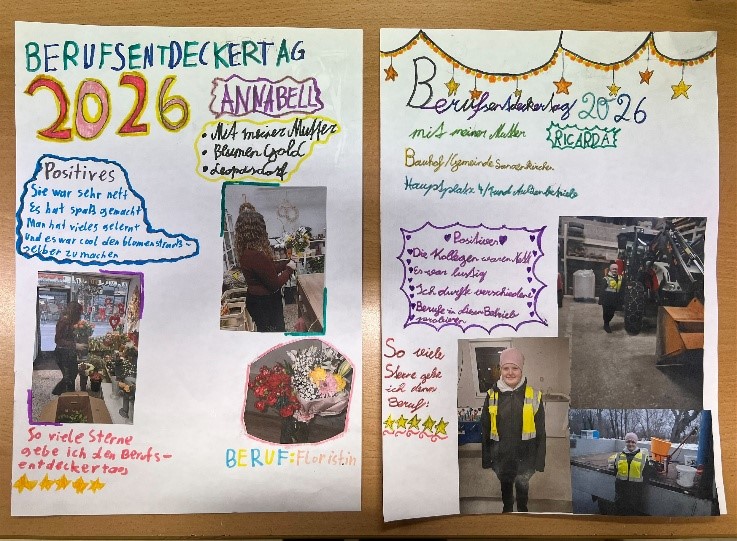 BERUFSENTDECKERTAG
2026
ANNABELL
• Mit meiner Mutter
• Blumen Gold
• Leopoldsdorf
Positives
Sie war sehr nett
Es hat spaß gemacht
Man hat vieles gelernt
und es war cool den blumenstrauß-
selber zu machen
So viele Sterne
gebe ich den Berufs-
entdeckertag
BERUF: Floristin
Berufsentdeckertag 2026
mit meiner Mutter
RICARDA
Bauhof/Gemeinde
Hauptplatz 4/1 und Außenbetriebe
Positives
Die Kollegen waren nett
Es war lustig
Ich durfte verschiedene
Berufe in diesem Betrieb
probieren
So viele
Sterne gebe
ich dem
Beruf: